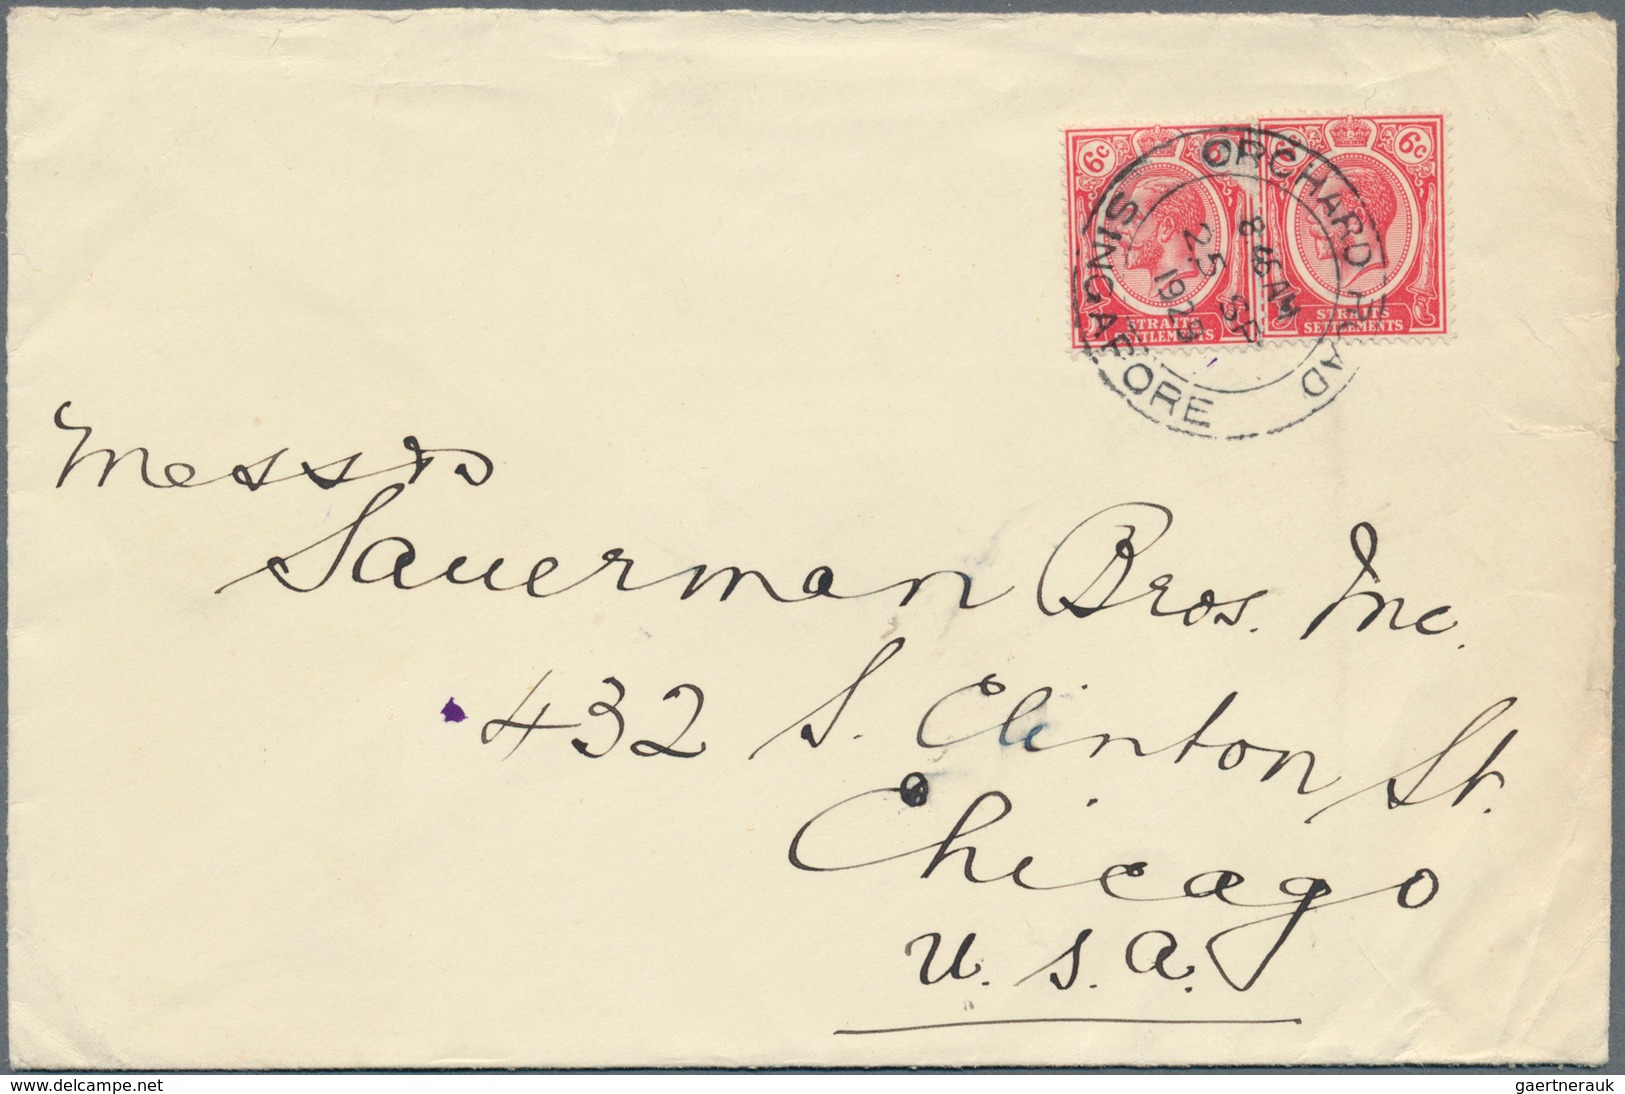 6c 6c
STRAITS SETTLEMENTS
STRAITS SETTLEMENTS
ORCHARD ROAD
8 45 AM
25 SP
1929
SINGAPORE
Messrs
Sauerman Bros. Inc.
432 S. Clinton St.
Chicago
U.S.A.
www.delcampe.net
gaertnerauk